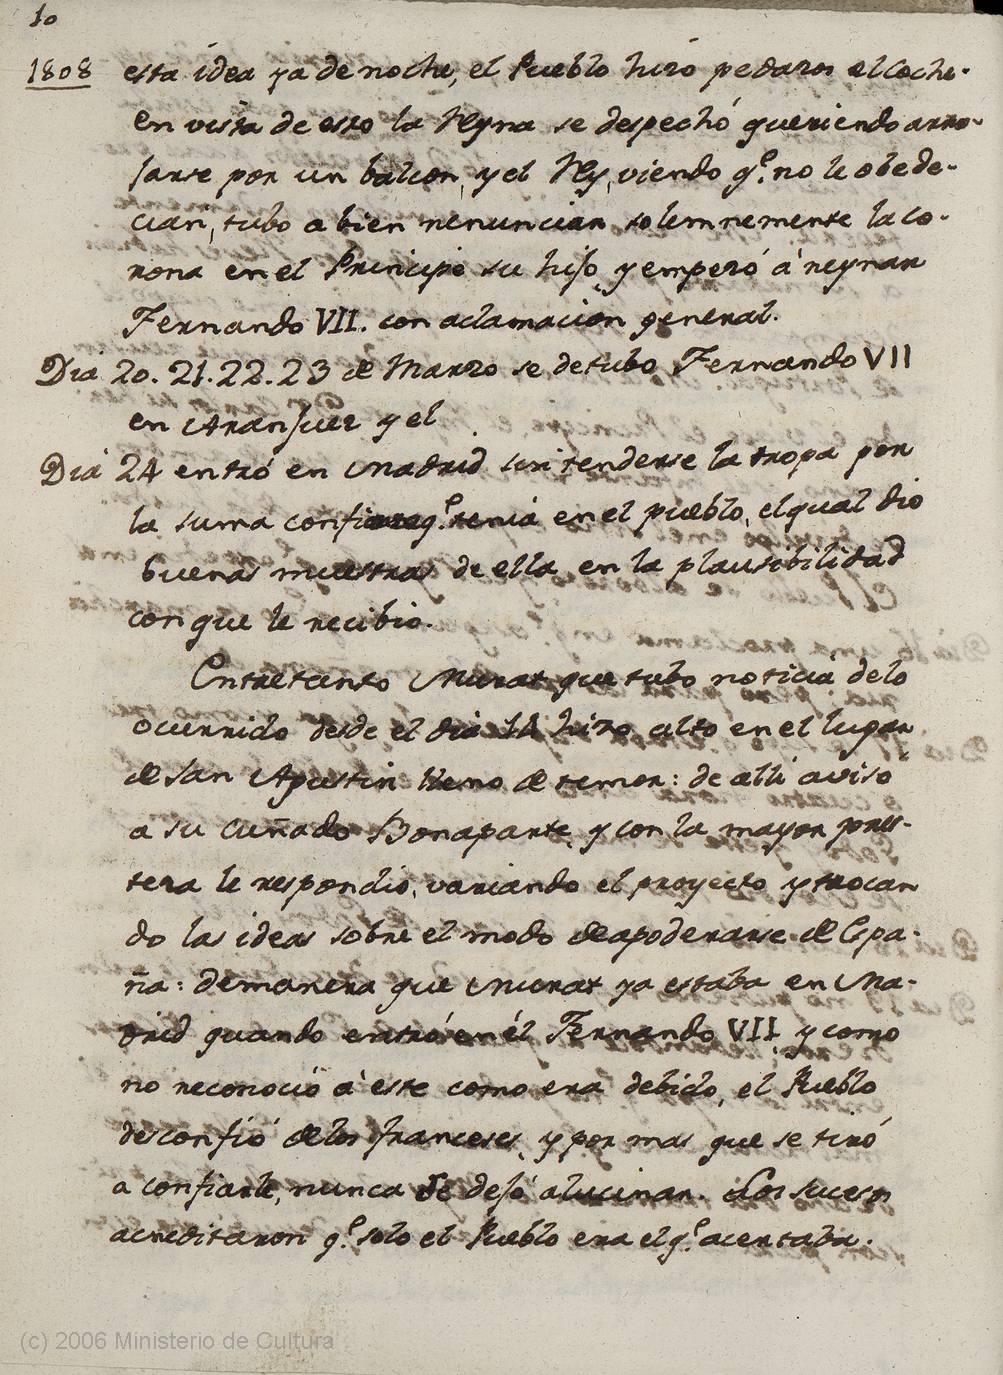 10
1808 esta idea ya de noche, el Pueblo hizo pedazos el coche.
en vista de esto la Reyna se despechó queriendo arro-
jarse por un balcon, y el Rey, viendo q.e no le obede-
cian, tubo a bien renunciar solemnemente la co-
rona en el Principe su hijo, y empezó á reynar
Fernando VII. con aclamacion general.
Dia 20. 21. 22. 23 de Marzo se detubo Fernando VII
en Aranjuez y el
Dia 24 entró en Madrid sin tenderse la tropa por
la suma confianza q.e tenia en el pueblo, el qual dio
buenas muestras de ella en la plausibilidad
con que le recibio.
Entretanto Murat que tubo noticia delo
ocurrido desde el dia 14 hizo alto en el lugar
de San Agustin lleno de temor: de alli avisó
a su cuñado Bonaparte, y con la mayor pres-
teza le respondio, variando el proyecto y trocan
do las ideas sobre el modo de apoderarse de Espa-
ña: demanera que Murat ya estaba en Ma-
drid quando entró en él Fernando VII, y como
no reconoció á este como era debido, el Pueblo
desconfió delos franceses, y por mas que se tiró
a confiarle, nunca se dejó alucinar. Los sucesos
acreditaron q.e solo el Pueblo era el q.e acertaba.
(c) 2006 Ministerio de Cultura